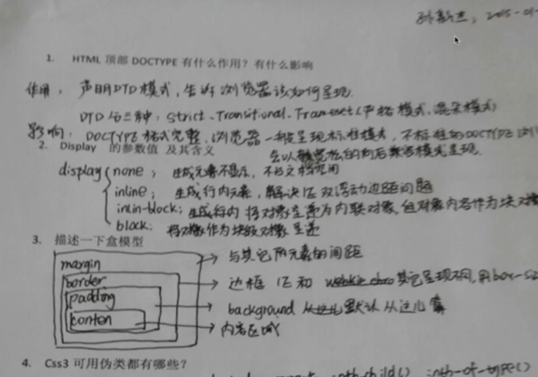 2015-01-
1. HTML 顶部 DOCTYPE 有什么作用？有什么影响
作用：声明DTD模式，告诉浏览器该如何呈现
DTD 分三种：strict、Transitional、Frameset (严格模式、混杂模式)
影响：DOCTYPE格式完整，浏览器一般呈现标准模式，不标准的DOCTYPE
2. Display 的参数值 及其含义
会以 宽松的向后兼容模式呈现
display none；生成元素不显示，不占文档空间
inline；生成行内元素，解决IE双浮动边距问题
inlin-block；生成行内 将对象呈递为内联对象，但对象内容作为块对
block：将对象作为块级对象呈递
3. 描述一下盒模型
margin → 与其它 元素的间距
border → 边框 IE和 其它呈现不同，用box-
padding → background 默认从这儿算
conten → 内容区域
4. Css3 可用伪类都有哪些？
nth-child() nth-of-type()